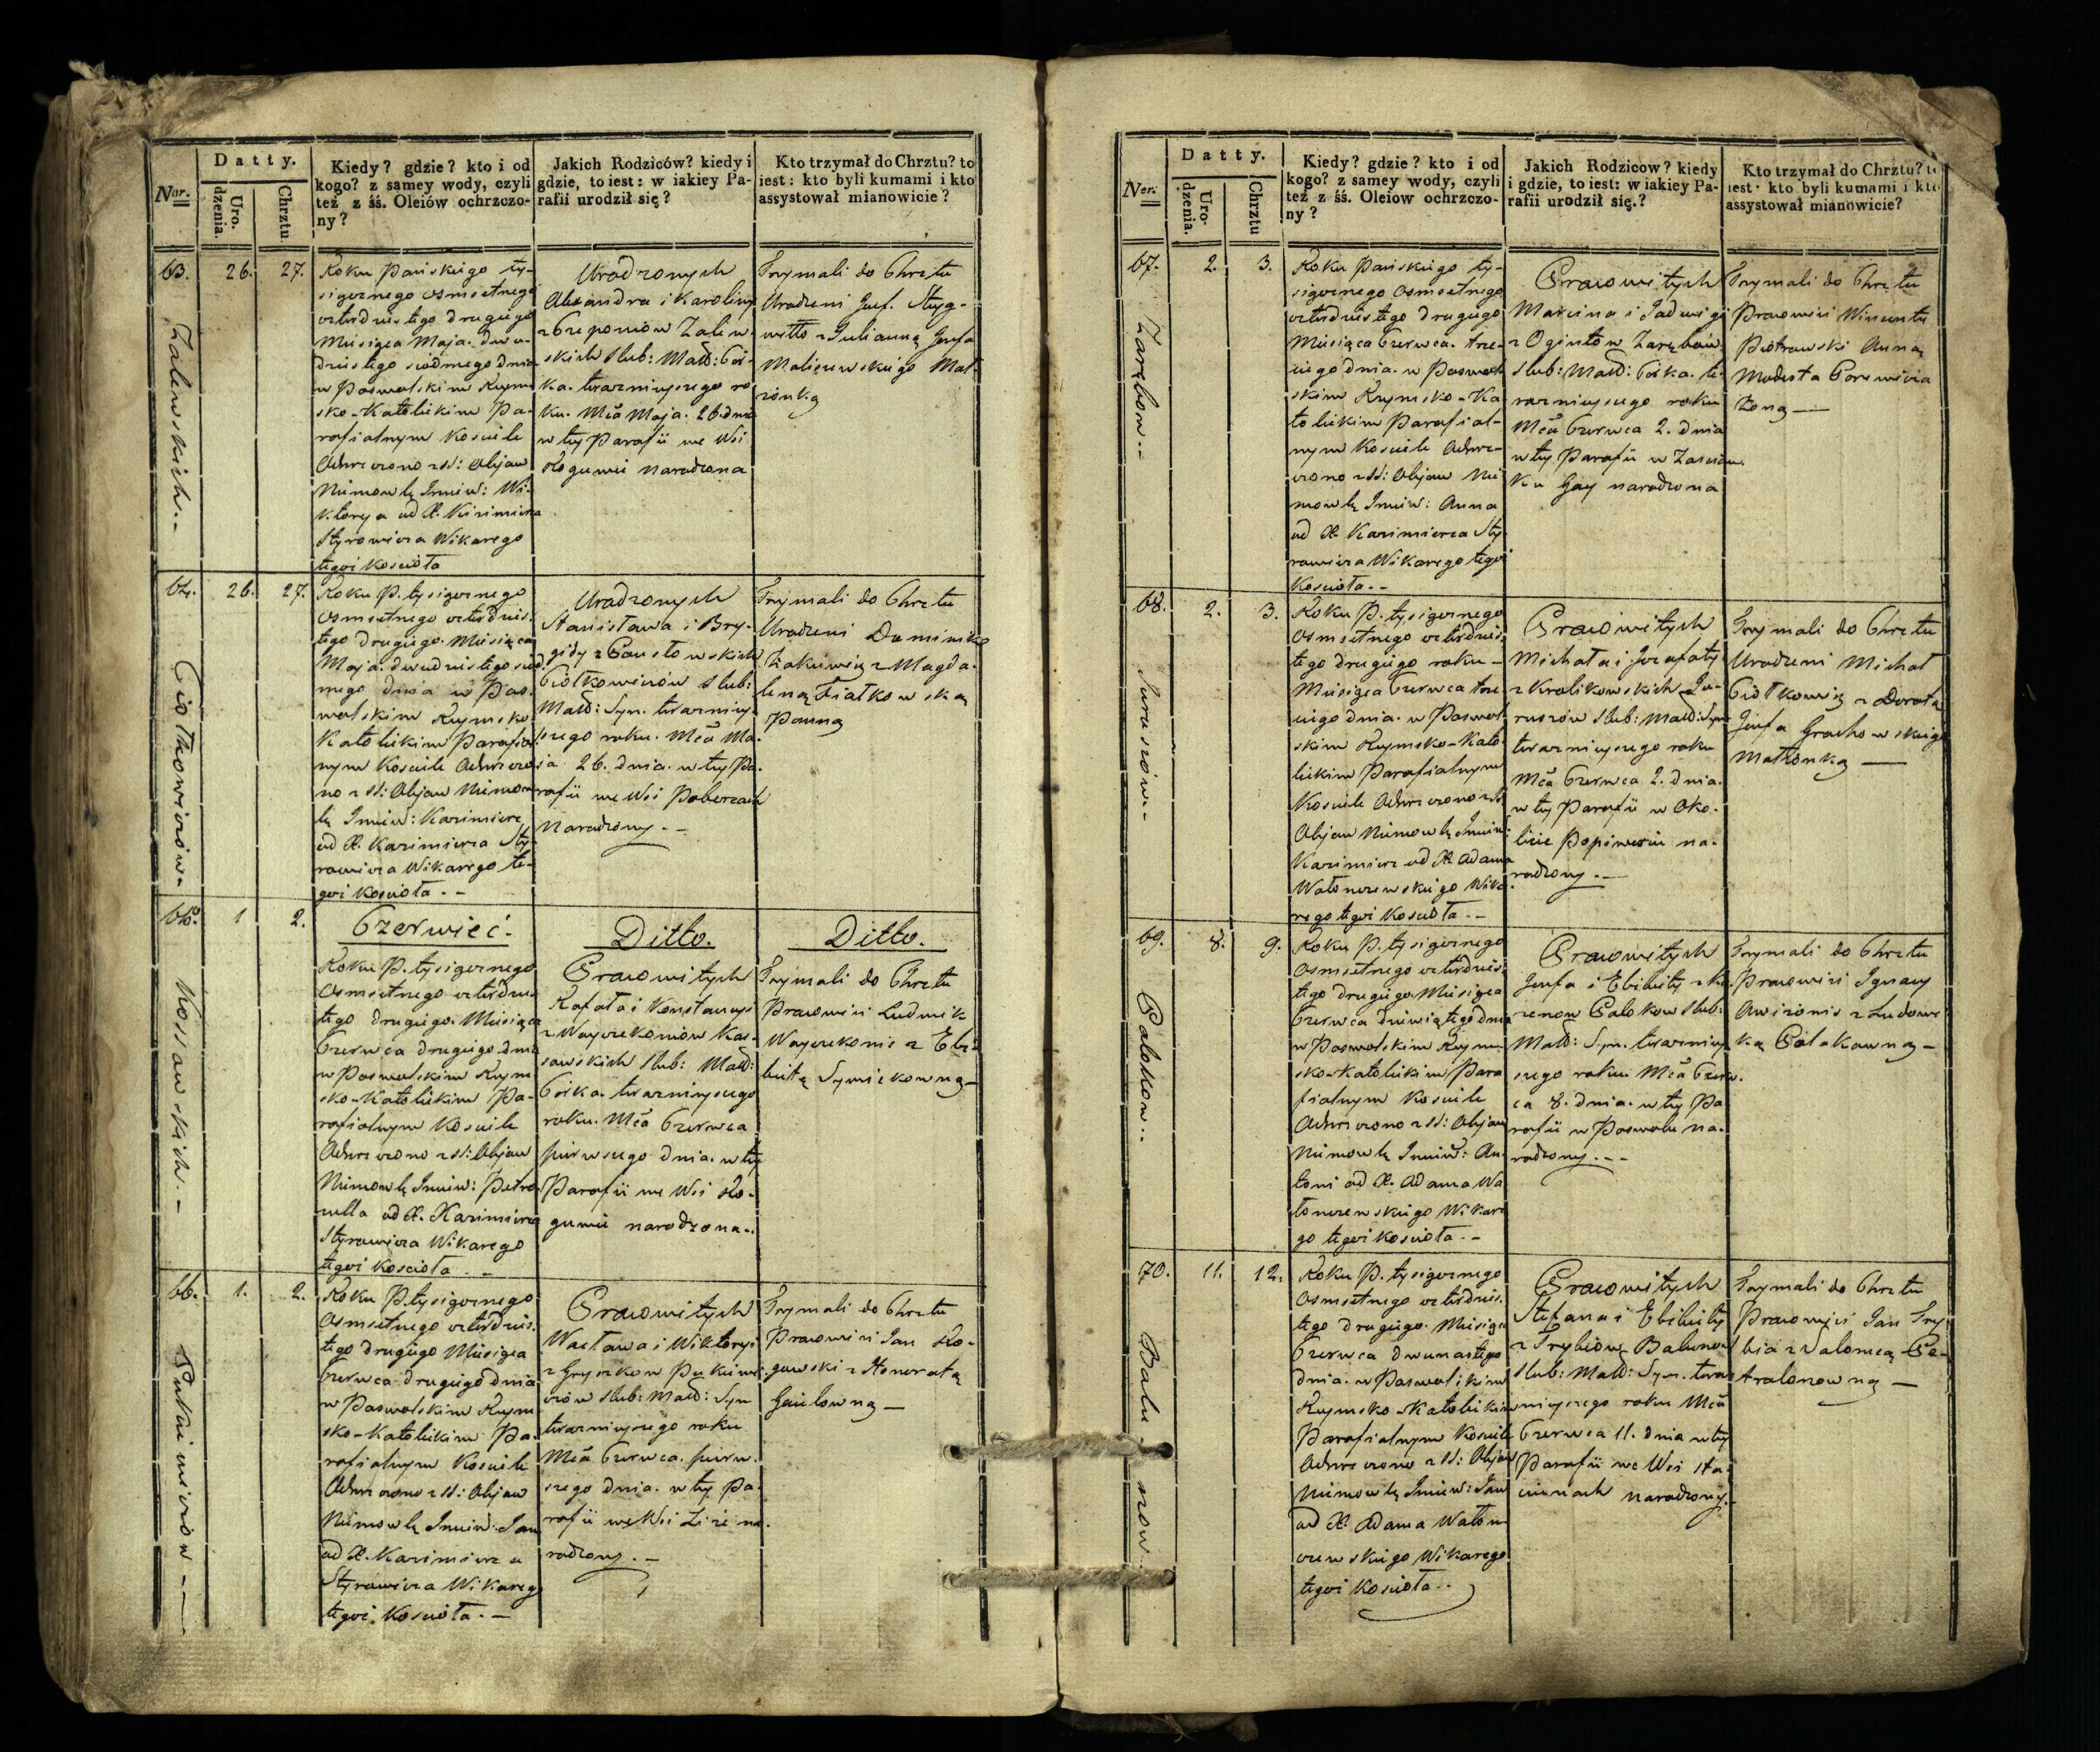 Nar.
Datty.
Urodzenia.
Chrztu.
Kiedy? gdzie? kto i od
kogo? z samey wody, czyli
też z śś. Oleiów ochrzczo-
ny?
Jakich Rodziców? kiedy i
gdzie, to iest: w iakiey Pa-
rafii urodził się?
Kto trzymał do Chrztu? to
iest: kto byli kumami i kto
assystował mianowicie?
63.
Zalewskich.-
26.
27.
Roku Pańskiego ty-
siącznego osmsetnego
czterdziestego drugiego
Miesiąca Maja. dwu-
dziestego siódmego dnia
w Poswolskim Rzym-
sko-Katolickim Pa-
rafialnym Kościele
Ochrzczono z SS: Olejow
Niemowlę Imien: Wi-
ktorya od X. Kazimierza
Styrowicza Wikarego
tegoż Kościoła
Urodzonych
Alexandra i Karoliny
z Czeponiów Zalew-
skich Slub: Małż: Cór-
ka. teraznieyszego ro-
ku. Mca Maja. 26. dnia
w tey Parafii we Wsi
Rogumie narodzona
Trzymali do Chrztu
Urodzeni Jozef
z Julianną Jozefa
Maliszewskiego Mał-
żonką
64.
Ciotkowiczów-
26.
27.
Roku P. tysiącznego
osmsetnego czterdzies-
tego drugiego. Miesiąca
Maja. dwudziestego siód-
mego dnia w Pos-
wolskim Rzymsko
Katolickim Parafial-
nym Kościele Ochrzczo-
no z SS: Olejow Niemow-
lę Imien: Kazimierz
od X. Kazimierza Sty-
rowicza Wikarego te-
goż Kościoła.-
Urodzonych
Stanisława i Bry-
gidy z Gąstowskich
Ciotkowiczów Slub:
Małż: Syn. teraźniey-
szego roku. Mca Ma-
ja 26. dnia. w tey Pa-
rafii we Wsi Poberżach
Narodzony.-
Trzymali do Chrztu
Urodzeni Dominik
Żakiewicz z Magda-
leną Fiałkowską
Panną
65.
Kossawskich.-
1
2.
Czerwiec.
Roku P. tysiącznego
Osmsetnego czterdzies-
tego drugiego. Miesiąca
Czerwca drugiego dnia
w Poswolskim Rzym-
sko-Katolickim Pa-
rafialnym Kościele
Ochrzczono z SS: Olejow
Niemowlę Imien: Petro-
nella od X. Kazimierza
Styrowicza Wikarego
tegoż Kościoła.-
Ditto.
Pracowitych
Rafała i Konstancyi
z Wayczekoniów Kos-
sawskich Slub: Małż:
Córka. teraznieyszego
roku. Mca Czerwca
pierwszego dnia. w tey
Parafii we Wsi Ro-
gumie narodzona.-
Ditto.
Trzymali do Chrztu
Pracowici Ludwik
Wayczekonis z Elż-
bietą Szymiekowną-
66.
Pukiewiczów-
1.
2.
Roku P. tysiącznego
Osmsetnego czterdzies-
tego drugiego Miesiąca
Czerwca. drugiego dnia
w Poswolskim Rzym-
sko-Katolickim Pa-
rafialnym Kościele
Ochrzczono z SS: Olejow
Niemowlę Imien: Jan
od X. Kazimierza
Styrowicza Wikarego
tegoż Kościoła.-
Pracowitych
Wacława i Wiktoryi
z Gryszkow Pukiewi-
czów Slub: Małż: Syn
teraznieyszego roku
Mca Czerwca. pierw-
szego dnia. w tey Pa-
rafii we Wsi na-
rodzony.-
Trzymali do Chrztu
Pracowici Jan Ro-
gowski z Honoratą
Gailowną-
Ner.
Datty.
Urodzenia.
Chrztu
Kiedy? gdzie? kto i od
kogo? z samey wody, czyli
też z śś. Oleiow ochrzczo-
ny?
Jakich Rodzicow? kiedy
i gdzie, to iest: w iakiey Pa-
rafii urodził się.?
Kto trzymał do Chrztu? t
iest: kto byli kumami i kto
assystował mianowicie?
67.
Zarębow.-
2.
3.
Roku Pańskiego ty-
siącznego Osmsetnego
czterdziestego drugiego
Miesiąca Czerwca. trze-
ciego dnia. w Poswol-
skim Rzymsko-Ka-
tolickim Parafial-
nym Kościele Ochrz-
czono z SS: Olejow Nie-
mowlę Imien: Anna
od X. Kazimierza Sty-
rowicza Wikarego tegoż
Kościoła.-
Pracowitych
Marcina i Jadwigi
z Ogintów Zarębow
Slub: Małż: Córka. te-
raznieyszego roku
Mca Czerwca 2. dnia
w tey Parafii w Zaścian-
ku Gay narodzona
Trzymali do Chrztu
Pracowici Wincenty
Piotrowski Anną
Modesta
Żoną-
68.
Juraszów.-
2.
3.
Roku P. tysiącznego
Osmsetnego czterdzies-
tego drugiego roku-
Miesiąca Czerwca trze-
ciego dnia. w Poswol-
skim Rzymsko-Kato-
lickim Parafialnym
Kościele Ochrzczono z SS
Olejow Niemowlę Imien:
Kazimierz od X. Adama
Wałonczewskiego Wika-
rego tegoż Kościoła.-
Pracowitych
Michała i Jozafaty
z Krolikowskich Ju-
raszów Slub: Małż: Syn
teraznieyszego roku
Mca Czerwca 2. dnia.
w tey Parafii w Oko-
licie Popiwesie na-
rodzony.-
Trzymali do Chrztu
Urodzeni Michał
Ciotkowicz z Dorotą
Jozefa Grochowskiego
Małżonką-
69.
Polokow.-
8.
9.
Roku P. tysiącznego
Osmsetnego czterdzies-
tego drugiego. Miesiąca
Czerwca dziewiątego dnia
w Poswolskim Rzym-
sko-Katolickim Para-
fialnym Kościele
Ochrzczono z SS: Olejow
Niemowlę Imien: An-
toni od X. Adama Wa-
łonczewskiego Wikare-
go tegoż Kościoła.-
Pracowitych
Jozefa i Elżbiety
Polokow Slub:
Małż: Syn. teraźniey-
szego roku. Mca Czerw-
ca 8. dnia. w tey Pa-
rafii w Poswolu na-
rodzony.-
Trzymali do Chrztu
Pracowici Ignacy
Awiżonis z Ludowi-
ką Polakowną-
70.
Balu-now.
11.
12.
Roku P. tysiącznego
Osmsetnego czterdzies-
tego drugiego. Miesiąca
Czerwca dwunastego
dnia. w Poswolskim
Rzymsko-Katolickim
Parafialnym Kościele
Ochrzczono z SS: Olejow
Niemowlę Imien: Jan
od X. Adama Wałon-
czewskiego Wikarego
tegoż Kościoła.-
Pracowitych
Stefana i Elżbiety
z Trybiow Balunow
Slub: Małż: Syn. teraz-
nieyszego roku Mca
Czerwca 11. dnia w tey
Parafii we Wsi
narodzony.
Trzymali do Chrztu
Pracowici Jan Try-
bia z Salomeą Pe-
tralonowną-